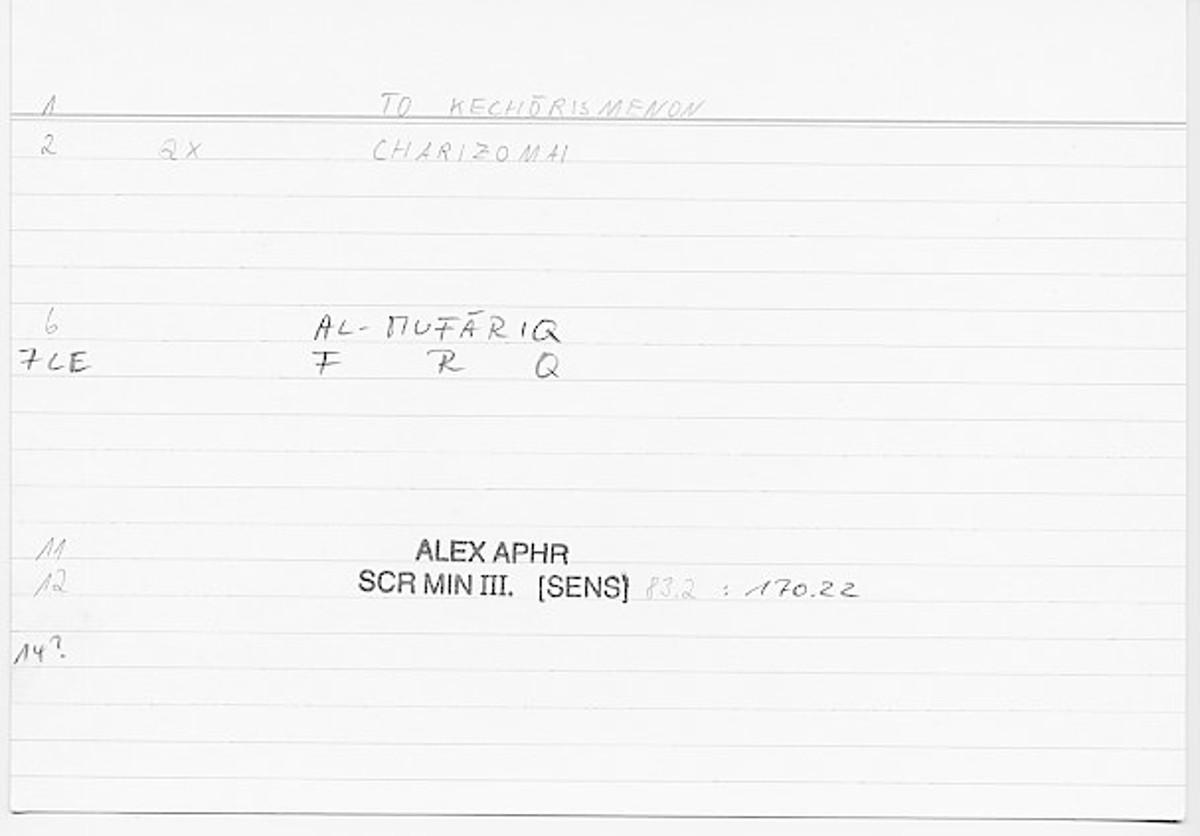 1 TO KECHŌRISMENON
2 QX CHARIZOMAI
6 AL-MUFĀRIQ
7LE F R Q
11 ALEX APHR
12 SCR MIN III. [SENS] 83.2 : 170.22
14?